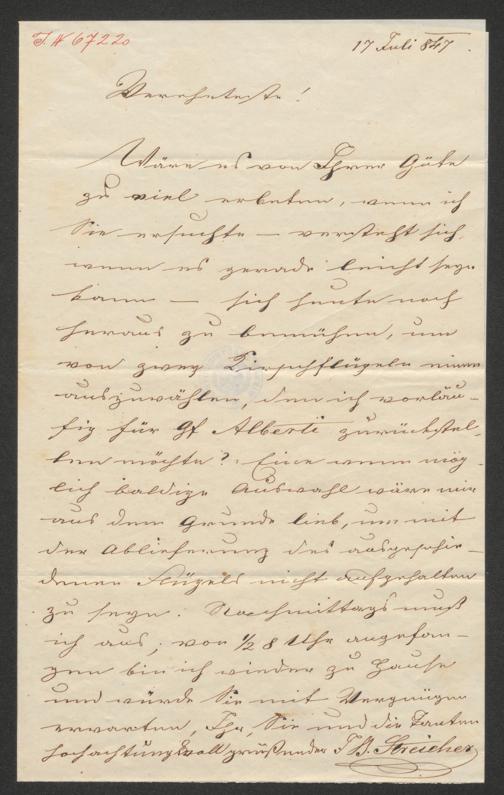 I. N 67220
17 Juli 847.
Verehrteste!
Wäre es von Ihrer Güte
zu viel erbeten, wenn ich
Sie ersuchte – versteht sich,
wenn es gerade leicht seyn
kann – sich heute noch
heraus zu bemühen, um
von zwey Kirschflügeln einen
auszuwählen, den ich vorläu-
fig für Gf Alberti zurückstel-
len möchte? Eine wenn mög-
lich baldige Auswahl wäre mir
aus dem Grunde lieb, um mit
der Ablieferung des ausgeschie-
denen Flügels nicht aufgehalten
zu seyn. Nachmittags muß
ich aus, von ½ 8 Uhr angefan-
gen bin ich wieder zu Hause
und würde Sie mit Vergnügen
erwarten, Ihr, Sie und die Tanten
hochachtungsvoll grüßender J. B. Streicher